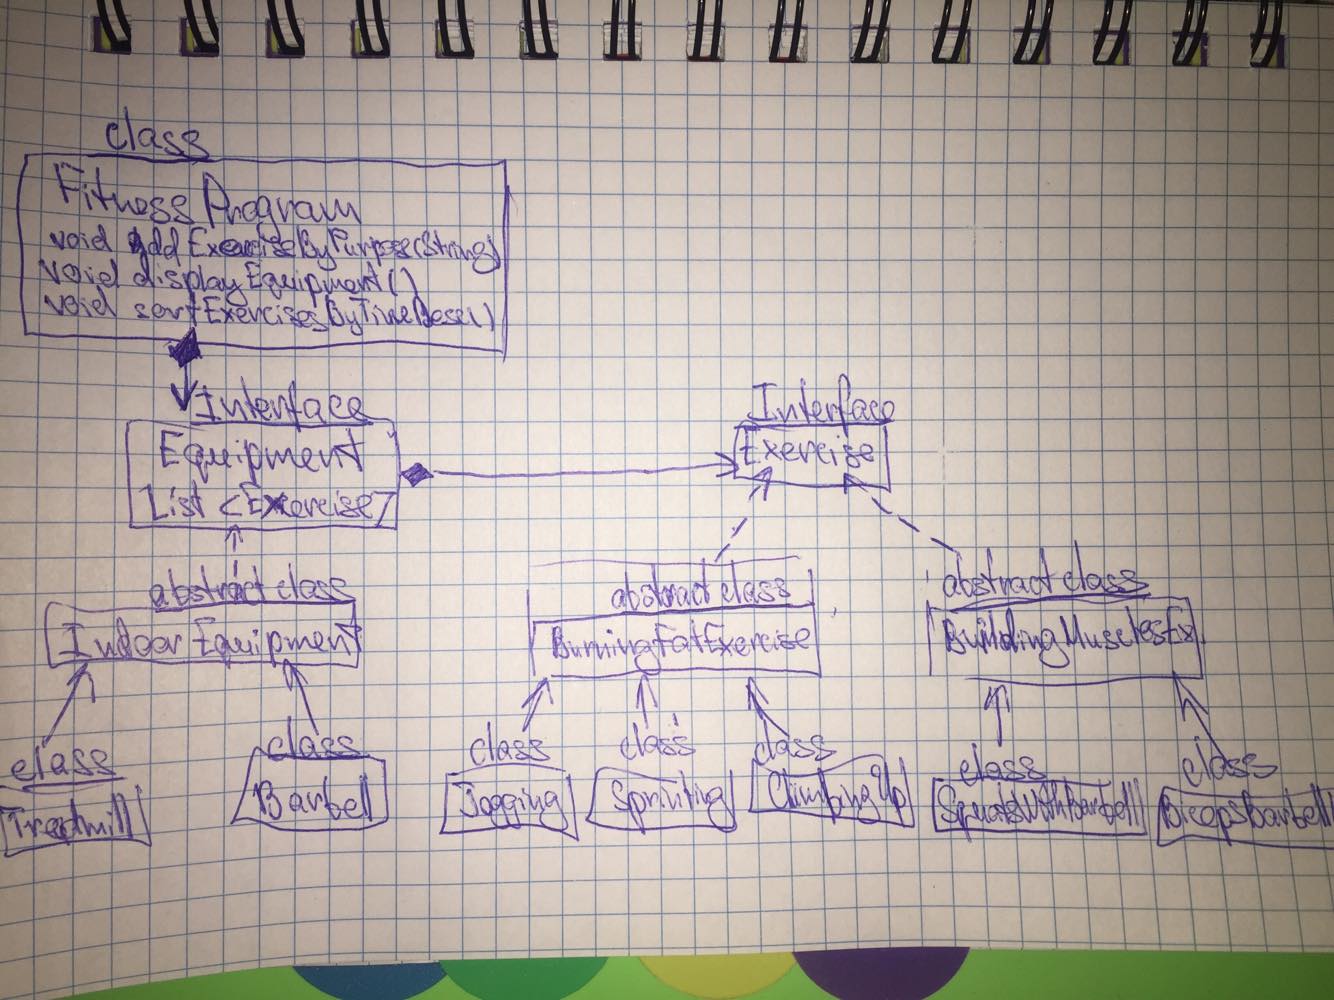 class
Fitness Program
void addExerciseByPurpose(String)
void displayEquipment()
void sortExercisesByTimeDesc()
Interface
Equipment
List <Exercise>
Interface
Exercise
abstract class
IndoorEquipment
abstract class
BurningFatExercise
abstract class
BuildingMusclesEx
class
Treadmill
class
Barbell
class
Jogging
class
Sprinting
class
ClimbingUp
class
SquatsWithBarbell
class
BicepsBarbell